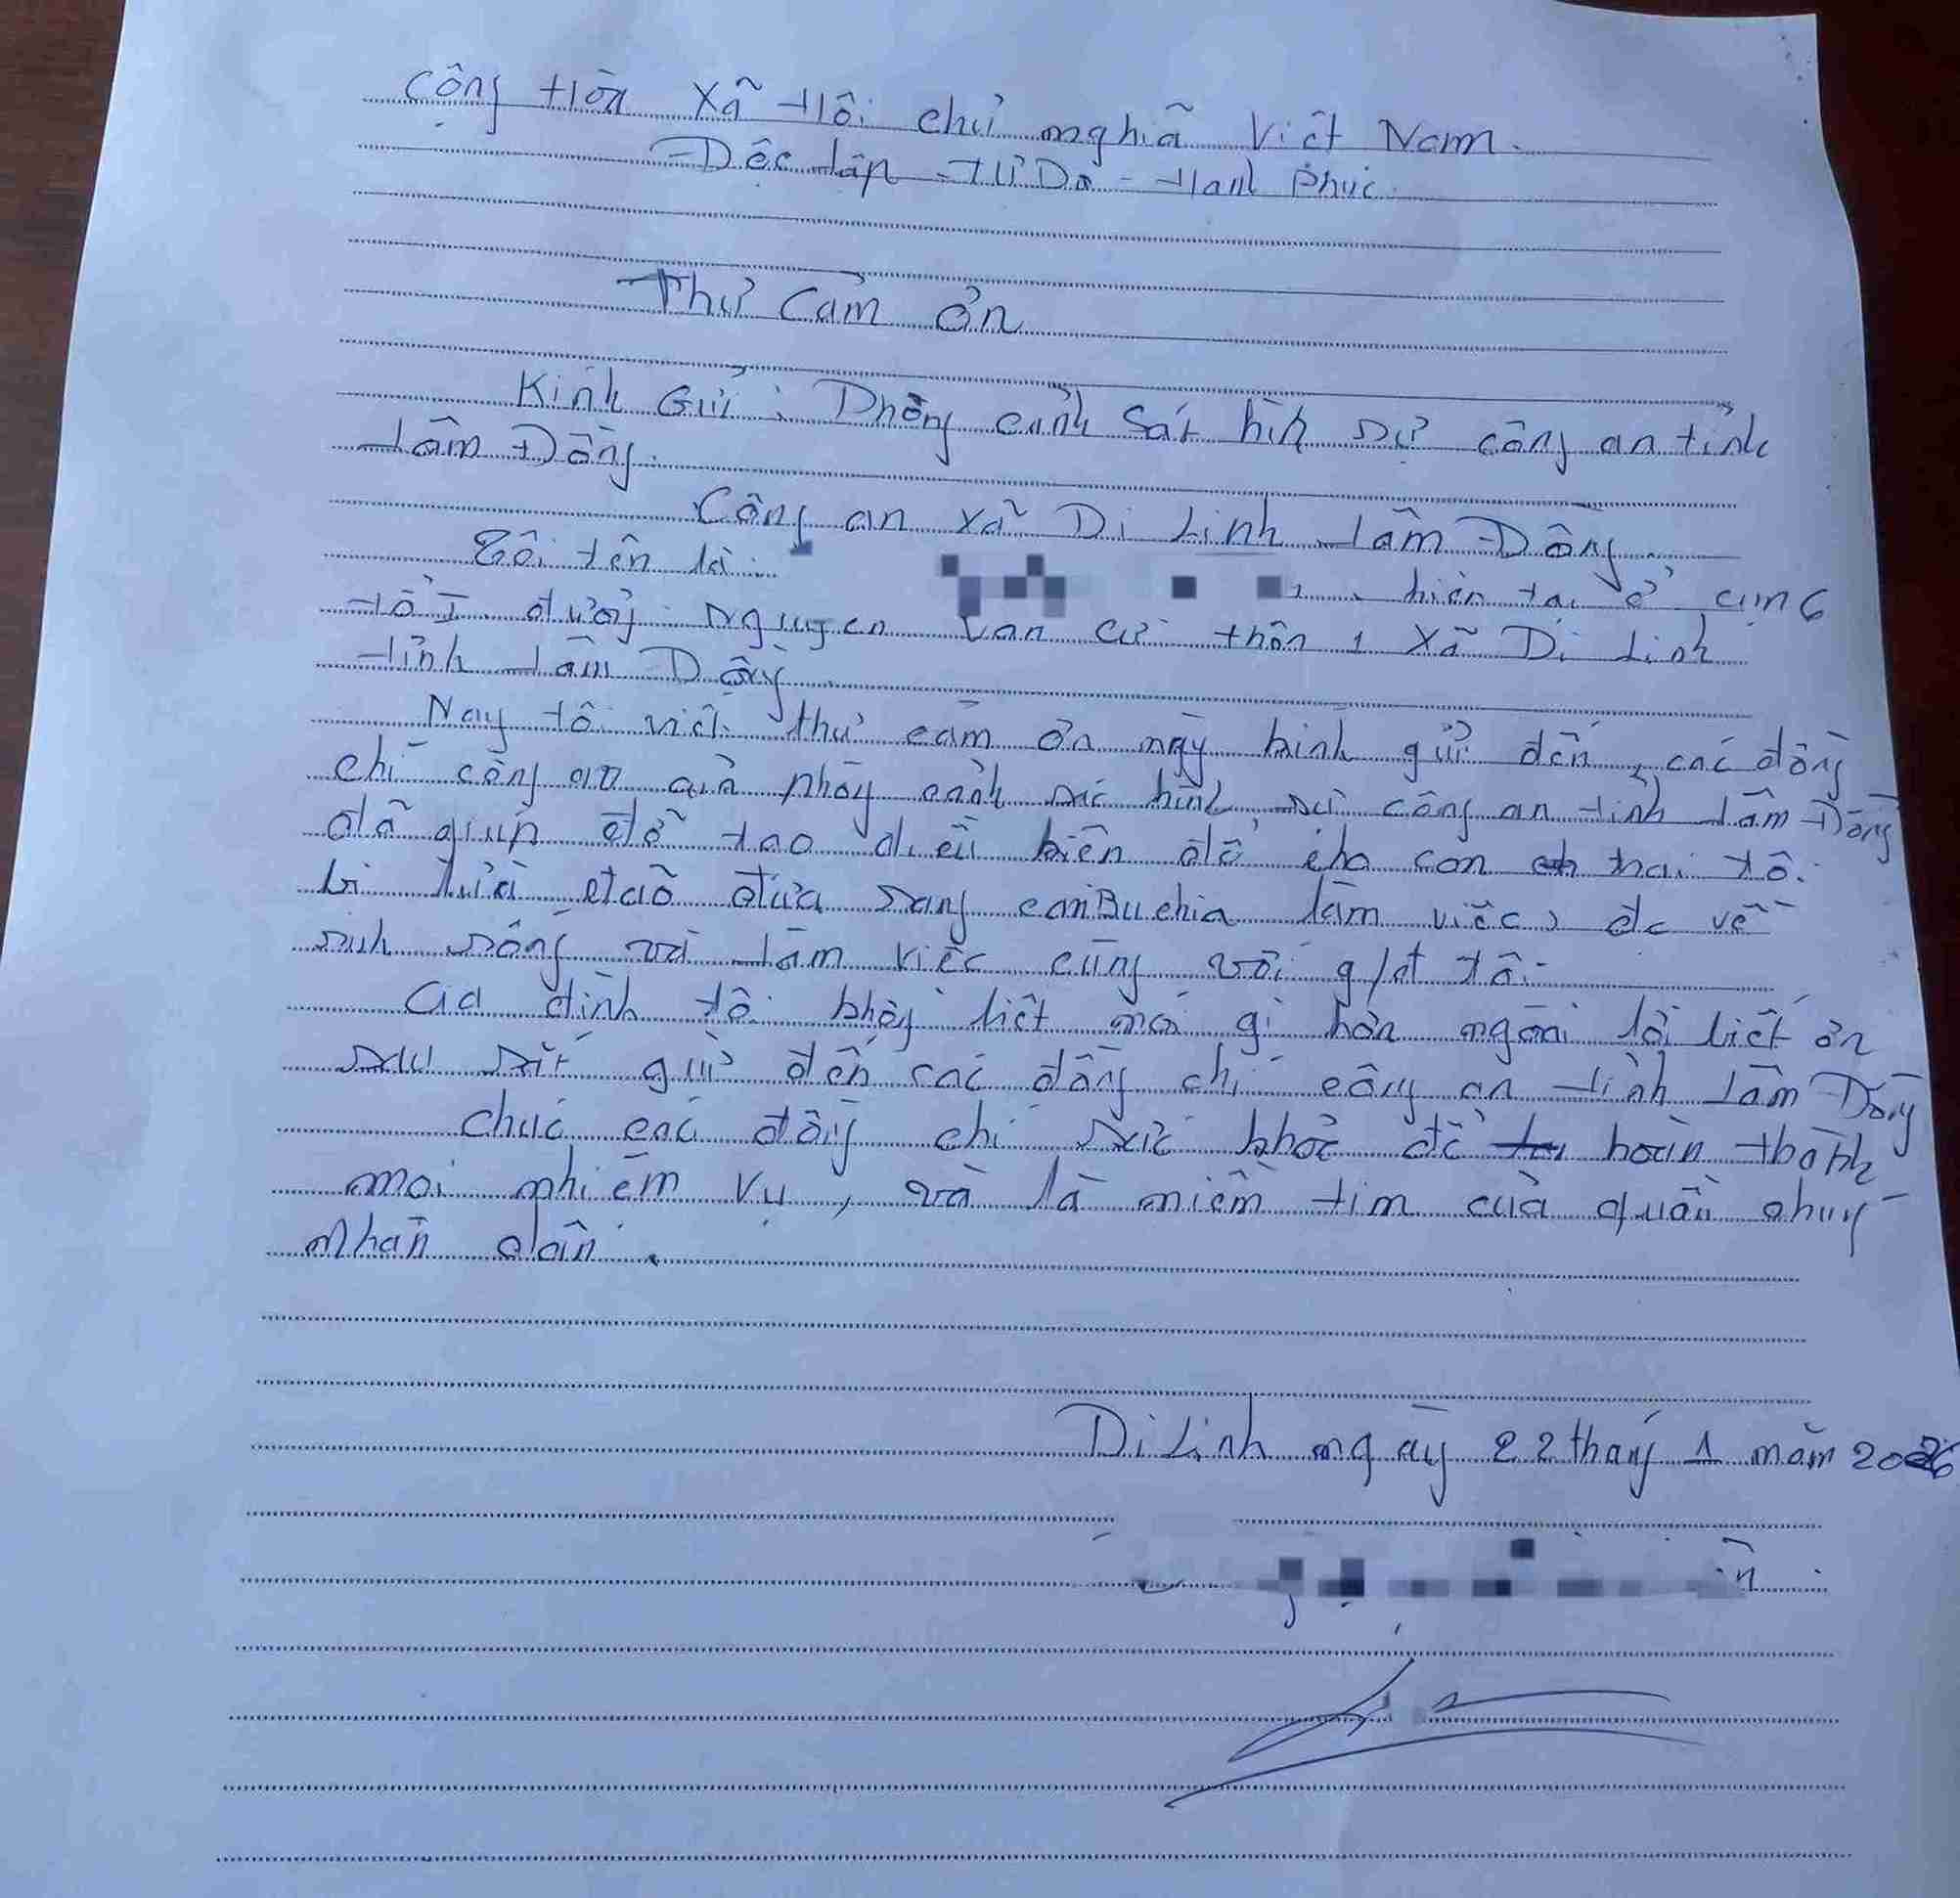 Cộng Hòa Xã Hội chủ nghĩa Việt Nam.
Độc lập - Tự Do - Hạnh Phúc.
Thư Cảm ơn
Kính Gửi : Phòng cảnh Sát hình sự công an tỉnh
Lâm Đồng.
Công an xã Di Linh Lâm Đồng.
Tôi tên là : hiện tại ở cụm 6
tổ 1 đường Nguyen Van Cừ thôn 1 Xã Di Linh
tỉnh Lâm Đồng
Nay tôi viết thư cảm ơn này kính gửi đến, các đồng
chí công an của phòng cảnh sác hình sự công an tỉnh Lâm Đồng
đã giúp đỡ tạo điều kiện để cho con trai tôi
bị lừa đaõ đưa sang camBuchia làm việc, đc về
sinh sống và làm việc cùng với g/đ tôi.
Gia đình tôi không biết nói gì hơn ngoài lời biết ơn
sau sắc gửi đến các đồng chí công an tỉnh Lâm Đồng
chúc các đồng chí sức khỏe để hoàn thành
mọi nhiệm vụ, và là niềm tim của quần chung
nhân dân.
Di Linh ngày 22 tháng 1 năm 2026